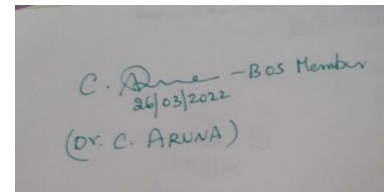 C. Aruna - BOS Member
26/03/2022
(Dr. C. ARUNA)